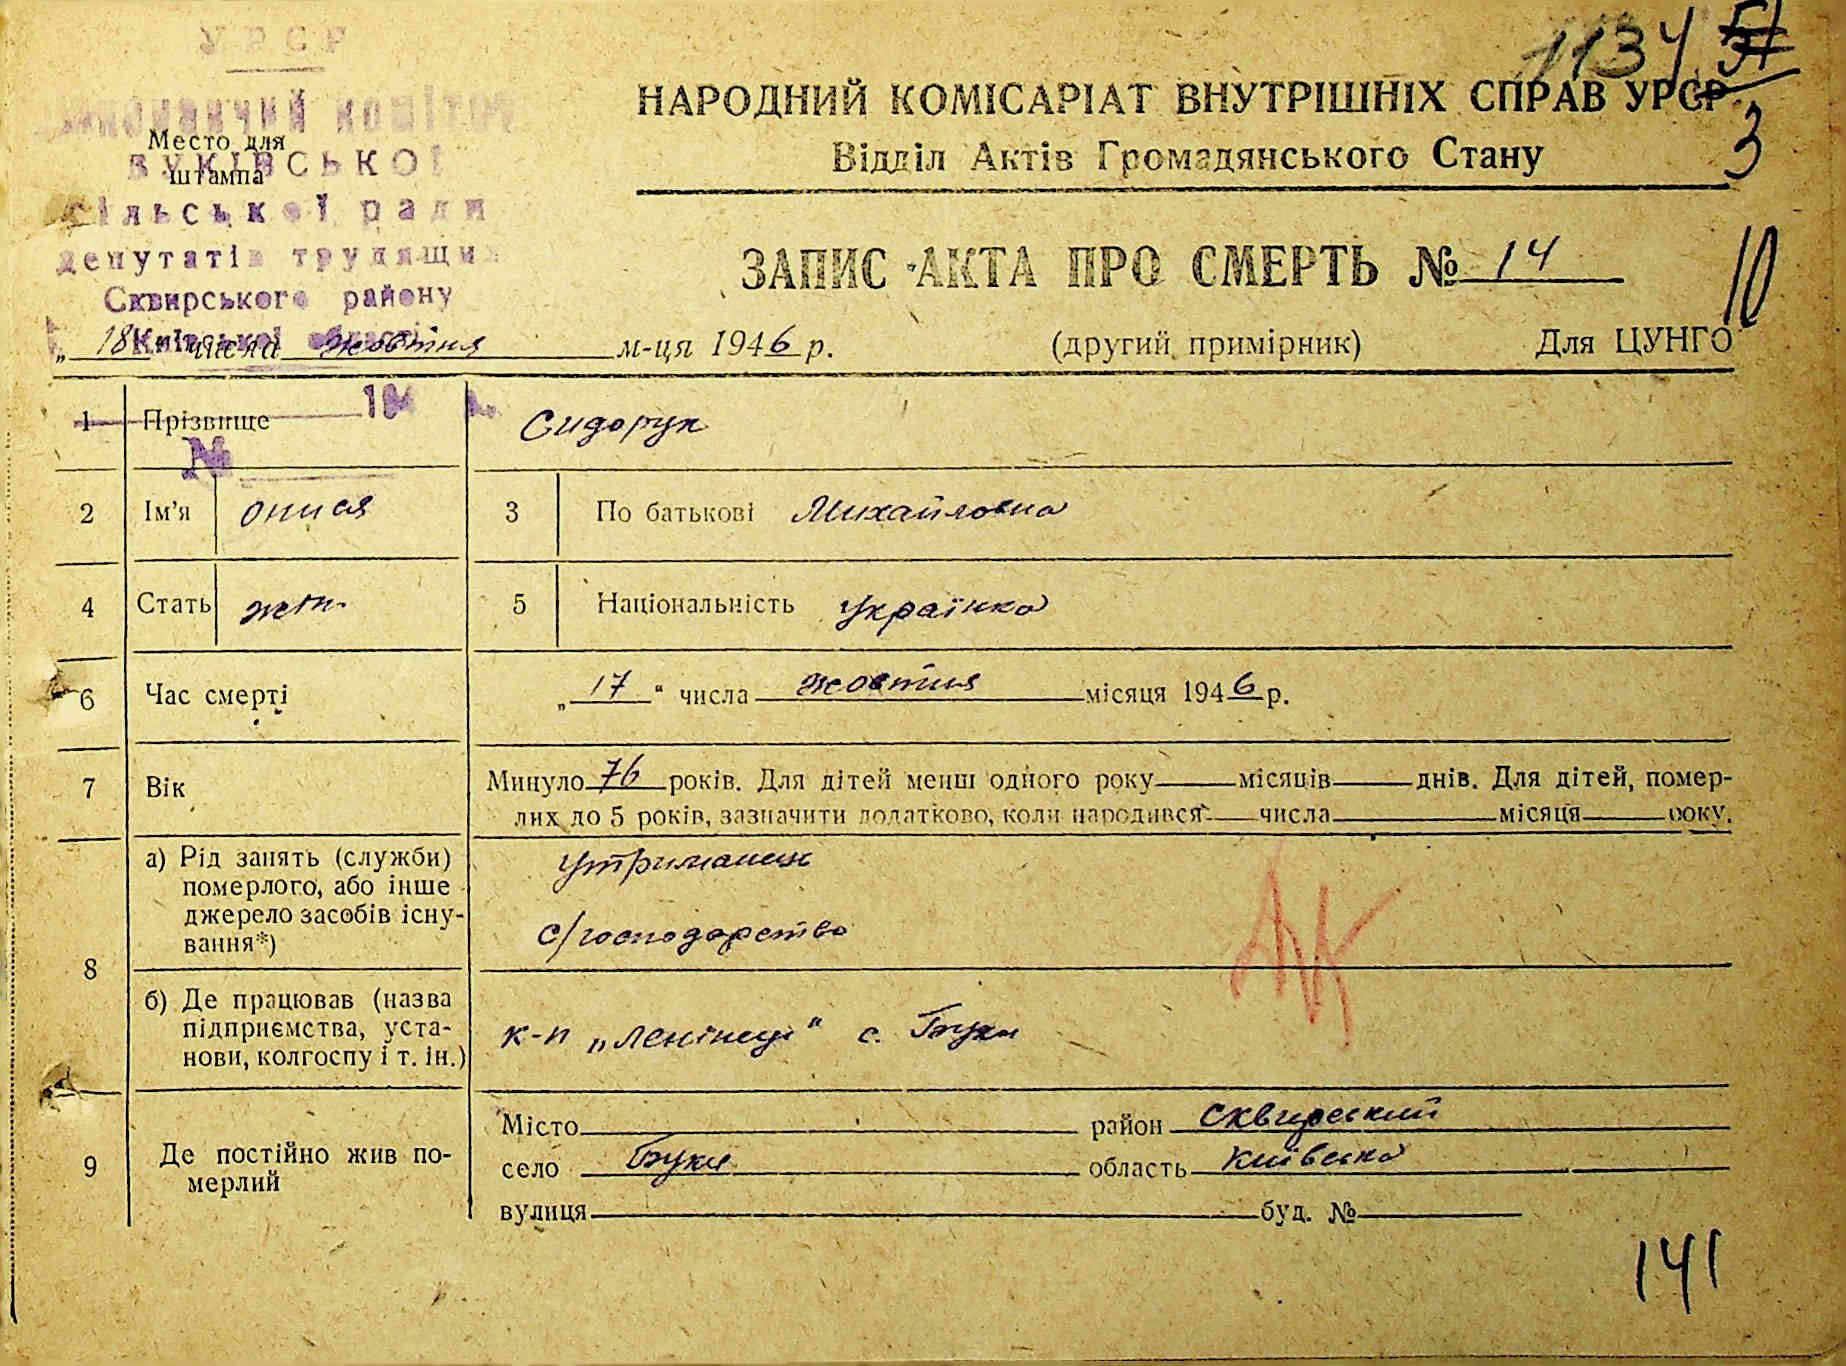 УРСР
Виконавчий комітет
Место для
БУКІВСЬКОЇ
штампа
сільської ради
депутатів трудящих
Сквирського району
Київської області
194 р.
№
1134
3
НАРОДНИЙ КОМІСАРІАТ ВНУТРІШНІХ СПРАВ УРСР
Відділ Актів Громадянського Стану
ЗАПИС АКТА ПРО СМЕРТЬ № 14
10
„ 18 " числа жовтня м-ця 1946 р.
(другий примірник) Для ЦУНГО
1 Прізвище Сидорук
2 Ім'я Онися 3 По батькові Михайловна
4 Стать жін. 5 Національність українка
6 Час смерті „ 17 " числа жовтня місяця 1946 р.
7 Вік Минуло 76 років. Для дітей менш одного року місяців днів. Для дітей, помер-
лих до 5 років, зазначити додатково, коли народився числа місяця року.
8 а) Рід занять (служби)
померлого, або інше
джерело засобів існу-
вання*)
утриманка
с/господарство
б) Де працював (назва
підприємства, уста-
нови, колгоспу і т. ін.)
к-п „Ленінець" с. Буки
9 Де постійно жив по-
мерлий
Місто район Сквирський
село Буки область Київська
вулиця буд. №
141